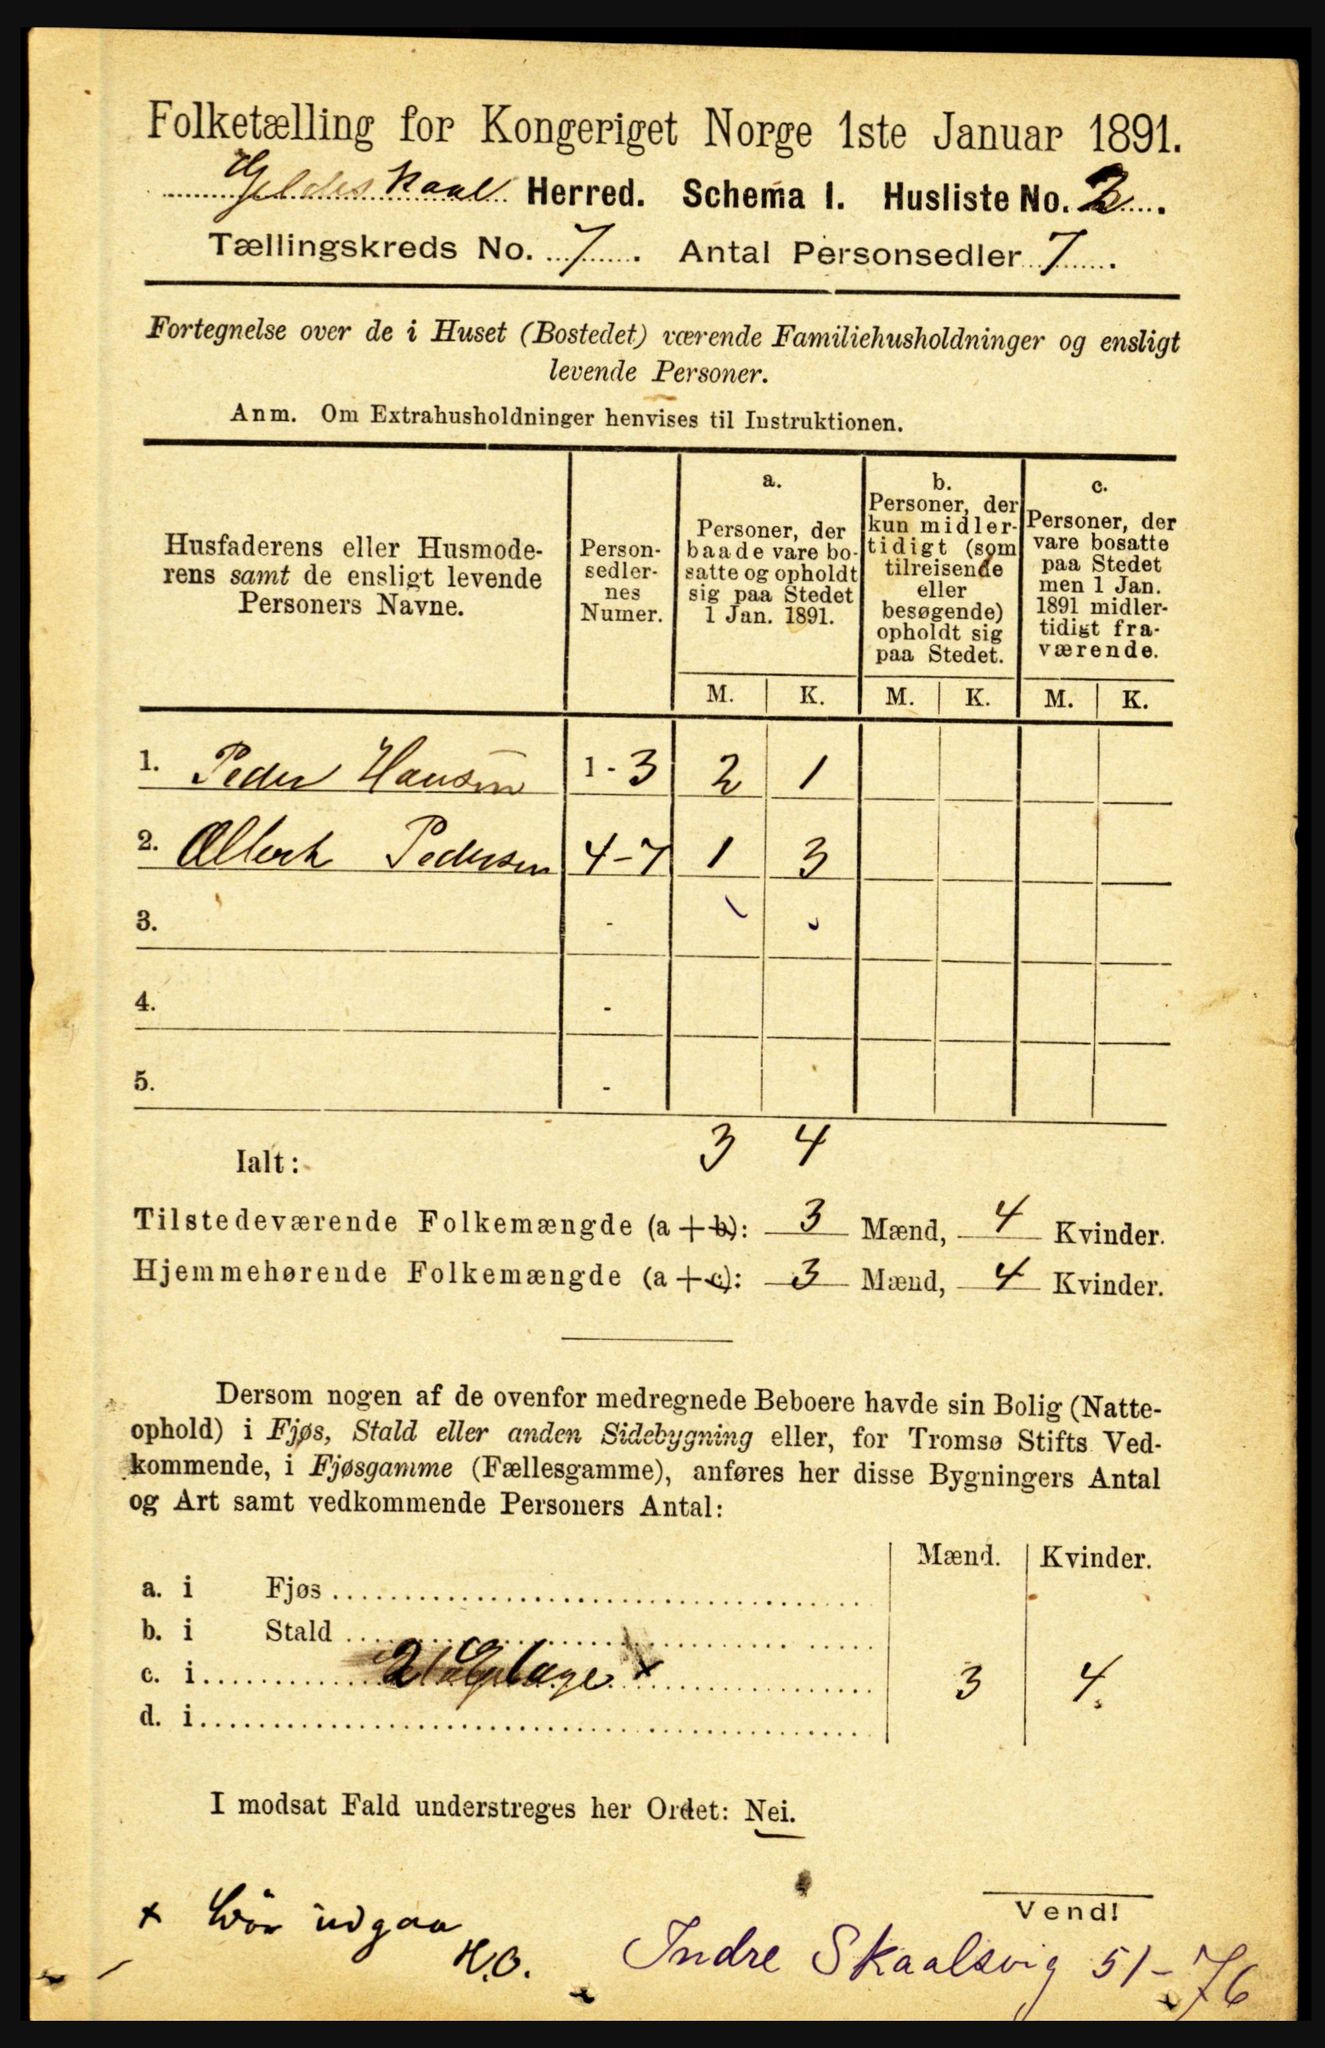 Folketælling for Kongeriget Norge 1ste Januar 1891.
Gildeskaal Herred. Schema I. Husliste No. 2.
Tællingskreds No. 7. Antal Personsedler 7.
Fortegnelse over de i Huset (Bostedet) værende Familiehusholdninger og ensligt
levende Personer.
Anm. Om Extrahusholdninger henvises til Instruktionen.
Husfaderens eller Husmode-
rens samt de ensligt levende
Personers Navne.
Person-
sedler-
nes
Numer.
a.
Personer, der
baade vare bo-
satte og opholdt
sig paa Stedet
1 Jan. 1891.
b.
Personer, der
kun midler-
tidigt (som
tilreisende
eller
besøgende)
opholdt sig
paa Stedet.
c.
Personer, der
vare bosatte
paa Stedet
men 1 Jan.
1891 midler-
tidigt fra-
værende.
M. K. M. K. M. K.
1. Peder Hansen 1 - 3 2 1
2. Albert Pedersen 4-7 1 3
3. -
4. -
5. -
Ialt: 3 4
Tilstedeværende Folkemængde (a + b): 3 Mænd, 4 Kvinder.
Hjemmehørende Folkemængde (a + c): 3 Mænd, 4 Kvinder.
Dersom nogen af de ovenfor medregnede Beboere havde sin Bolig (Natte-
ophold) i Fjøs, Stald eller anden Sidebygning eller, for Tromsø Stifts Ved-
kommende, i Fjøsgamme (Fællesgamme), anføres her disse Bygningers Antal
og Art samt vedkommende Personers Antal:
Mænd. Kvinder.
a. i Fjøs
b. i Stald
c. i x 3 4.
d. i
I modsat Fald understreges her Ordet: Nei.
Vend!
x bør udgaa
H.O.
Indre Skaalsvig 51-76